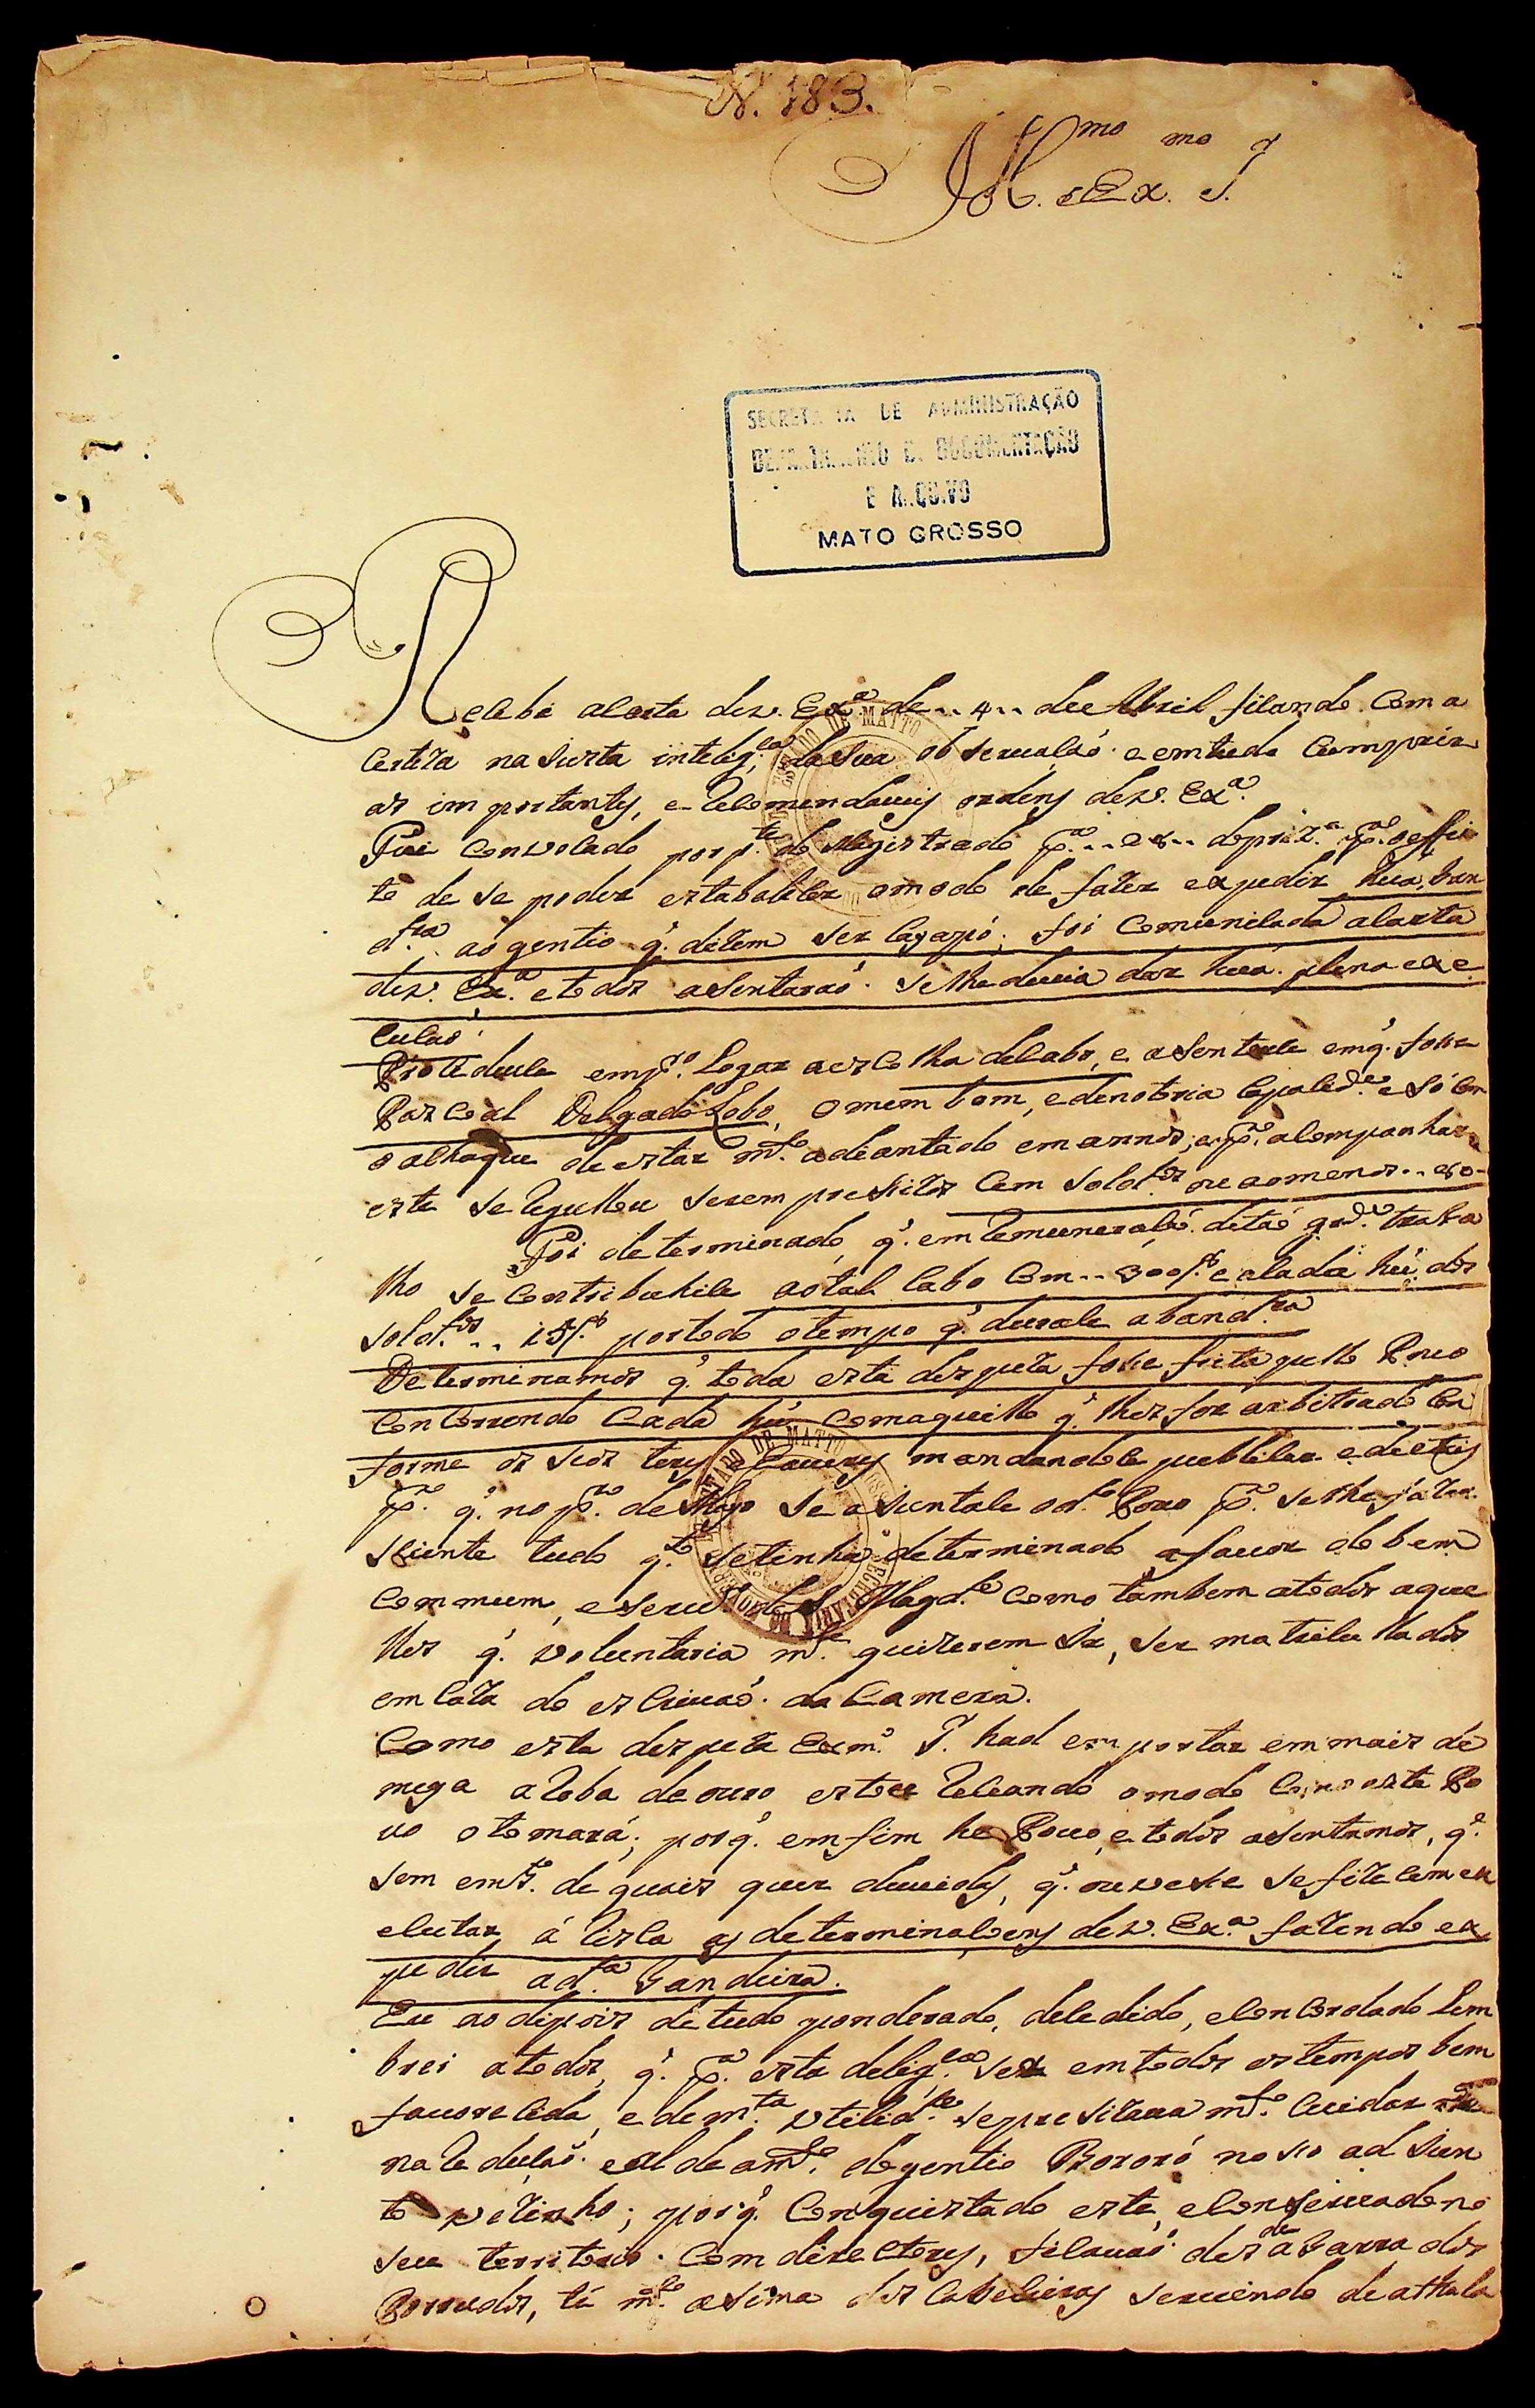 N. 183.
Ill.mo e Ex.mo S.r
SECRETA IA DE ADMINISTRAÇÃO
DEPARTAMENTO DE DOCUMENTAÇÃO
E ARQUIVO
MATO GROSSO
Recebi acarta dev. Exª de..4.. de Abril ficando Com a
Certeza na Justa intelig.ca da Sua observacaõ e emtudo Cumprir
as importantes, e recomendaveis ordens dev. Exª.
Fui Convocado por p.te do Magistrado p.ª .. .. o effei
to de se poder estabalecer omodo de fazer expedir hua ban
d.ra ao gentio q̃. dizem ser Cayapó; foi Comunicada acarta
dev. Ex.ª etodos asentaraõ Selhedevia dar hua plena exe
cucaõ
Procedeuce emp.ro Logar aescolha decabo, e asentouce emq̃. fose
Pascoal Delgado Lobo, omem bom, edenotoria Capacid.e e só Com
oachaque de estar m.to adeantado emannos; ep.ª acompanhar
este serequereu serem precizos Cem Sold.os ou aomenos.. 80..
Foi determinado, q̃. em remuneracaõ detaõ gr.de traba
lho se Contribuhise aotal Cabo Com.. 300/8.as e acada hũ dos
sold.os .. 15/8 portodo otempo q̃. durace aband.ra
Determinamos q̃. toda esta despeza fose feita pello Povo
Concorrendo Cada hũ Comaquillo q̃. lhes for arbitrado Con
forme os seos teres e averes mandandoce publicar editaes
p.ª q̃. no p.ro de Mayo se ajuntace od.o Povo p.ª selhe fazer
sciente tudo q.to setinha determinado afavor dobem
Commum, eservico de S. Mag.de Como tambem atodos aque
lles q̃. voluntaria m.te quizerem ir, ser matriculados
em Caza do escrivaõ da Camera.
Como esta despeza Exm.o S.r had emportar emmais de
meya aroba deouro estou receando omodo Como este Po
vo otomará; porq̃. emfim he Povo, etodos asentamos, q̃.
sem emb.o de quais quer duvidas, q̃. ouvese se fizece exe
cutar á risca as determinacoens dev. Ex.ª fazendo ex
pedir ad.ª bandeira.
Eu ao depois detudo ponderado, decedido, eConcordado lem
brei atodos, q̃. p.ª esta delig.ca ser emtodos ostempos bem
favorecida, e dem.ta utilid.e sepresizava m.to Cuidar
na reducaõ ealdeam.to dogentio Bororó noso adjun
to vezinho; porq̃. Conquistado este, eConservadono
seu territorio Com directores, ficavaõ desde abarra dos
Porrudos, té m.to asima das Cabeceiras servindo de athala